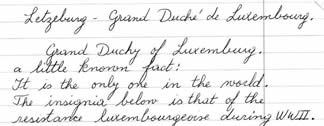 Letzeburg - Grand Duché de Luxembourg.
Grand Duchy of Luxemburg.
a little known fact:
It is the only one in the world.
The insignia below is that of the
resistance luxembourgeoise during WWII.